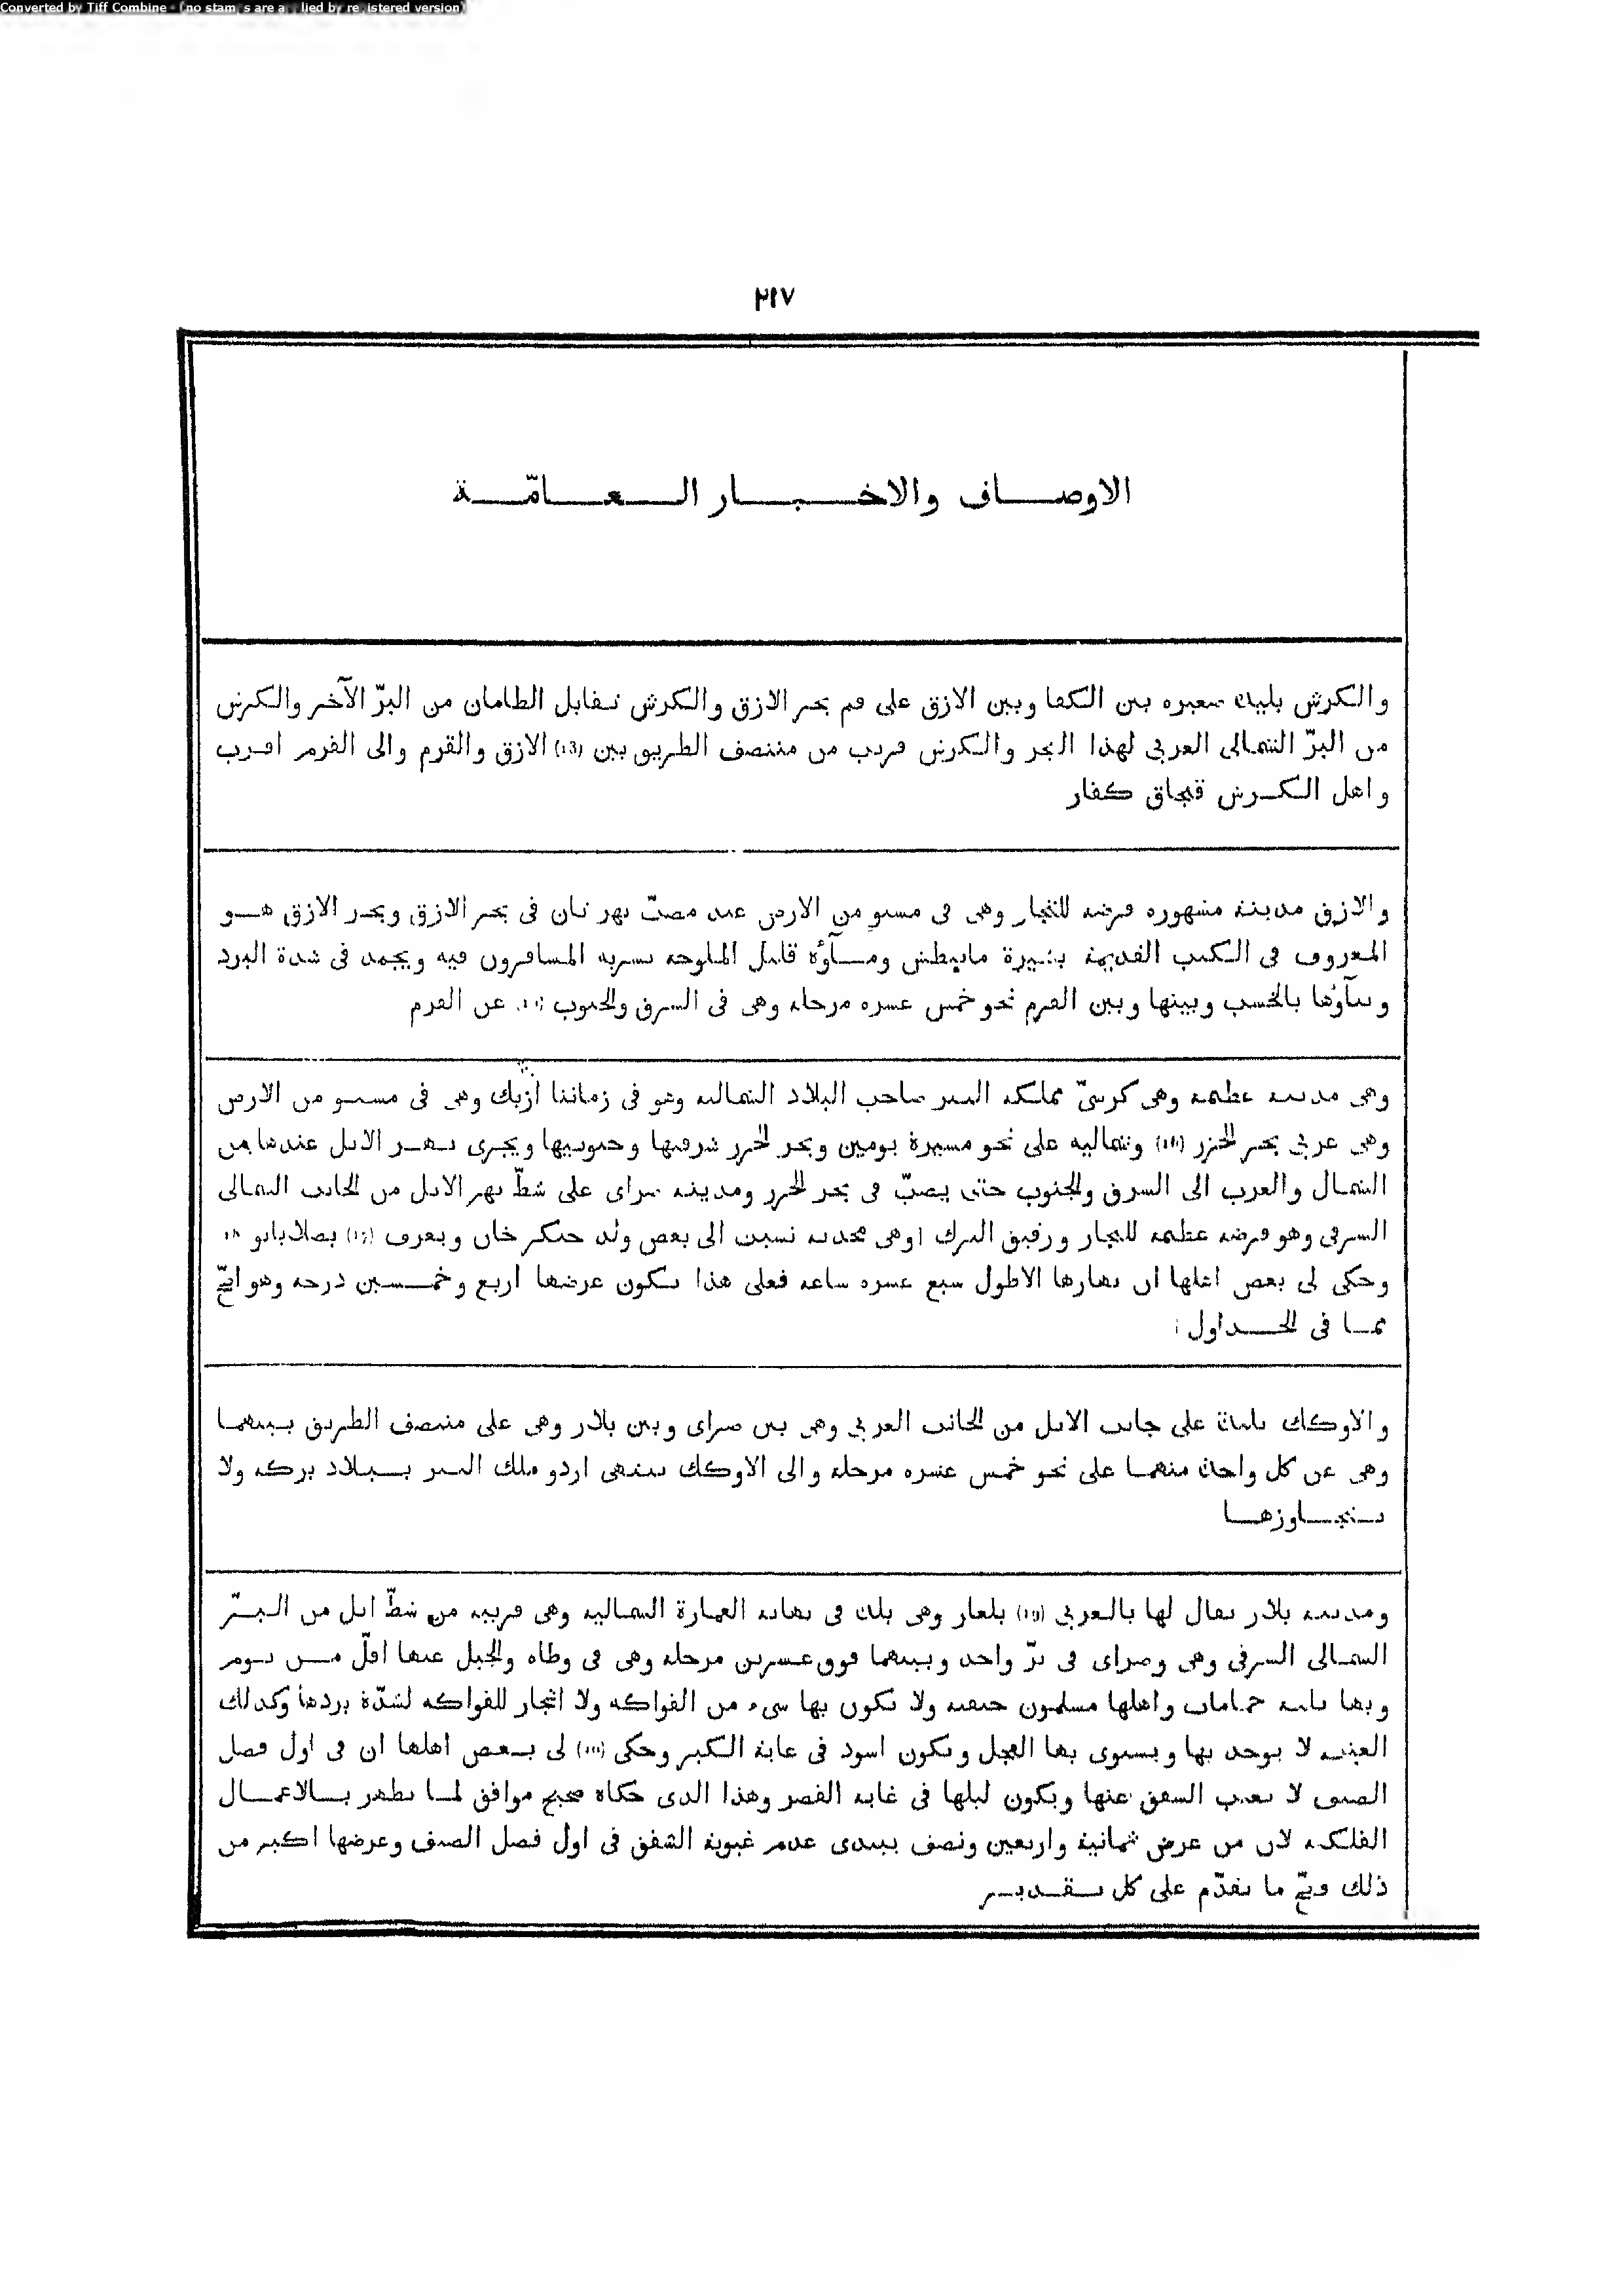 Converted by Tiff Combine - (no stamps are applied by registered version)
٢١٧
الاوصاف والاخبار العامّة
والكرش بليدة صغيره بين الكفا وبين الازق على فم بحر الازق والكرش تقابل الطامان من البرّ الآخر والكرش
من البرّ الشمالى الغربى لهذا البحر والكرش قريب من منتصف الطريق بين (13) الازق والقرم والى القرم اقرب
واهل الكرش قبجاق كفار
والازق مدينة مشهوره فرضه للتجار وهى فى مستو من الارض عند مصبّ نهر تان فى بحر الازق وبحر الازق هو
المعروف فى الكتب القديمة ببحيرة مانيطش وماؤه قليل الملوحه يشربه المسافرون فيه ويجمد فى شدة البرد
وبناؤها بالخشب وبينها وبين القرم نحو خمس عشره مرحلة وهى فى الشرق والجنوب عن القرم
وهى مدينه عظيمه وهى كرسىّ مملكه التتر صاحب البلاد الشماليه وهو فى زماننا ازبك وهى فى مستو من الارض
وهى غربى بحر الخزر وشماليه على نحو مسيرة يومين وبحر الخزر شرقيها وجنوبيها ويجرى نهر الاتل عندها من
الشمال والغرب الى الشرق والجنوب حتى يصبّ فى بحر الخزر ومدينه صراى على شطّ نهر الاتل من الجانب الشمالى
الشرقى وهو فرضه عظيمه للتجار ورقيق الترك وهى محدثه نسبت الى بعض ولد جنكز خان ويعرف
وحكى لى بعض اهلها ان نهارها الاطول سبع عشره ساعه فعلى هذا تكون عرضها اربع وخمسين درجه وهو اصحّ
مما فى الجداول
والاوكك بليدة على جانب الاتل من الجانب الغربى وهى بين صراى وبين بلار وهى على منتصف الطريق بينهما
وهى عن كل واحدة منهما على نحو خمس عشره مرحلة والى الاوكك ينتهى اردو ملك التتر ببلاد بركه ولا
يتجاوزها
ومدينه بلار يقال لها بالعربى بلغار وهى بلدة فى نهايه العمارة الشماليه وهى قريبه من شطّ اتل من البرّ
الشمالى الشرقى وهى وصراى فى برّ واحد وبينهما فوق عشرين مرحلة وهى فى وطاه والجبل عنها اقلّ من يوم
وبها ثلثه حمامات واهلها مسلمون حنفيه ولا تكون بها شىء من الفواكه ولا اشجار للفواكه لشدّة بردها وكذلك
العنب لا يوجد بها ويستوى بها الفجل وتكون اسود فى غاية الكبر وحكى لى بعض اهلها ان فى اول فصل
الصيف لا يغيب الشفق عنها ويكون ليلها فى غايه القصر وهذا الذى حكاه صحيح موافق لما يظهر بالاعمال
الفلكيه لان من عرض ثمانية واربعين ونصف يبتدى عدم غيبوبة الشفق فى اول فصل الصيف وعرضها اكبر من
ذلك فصحّ ما تقدّم على كل تقدير